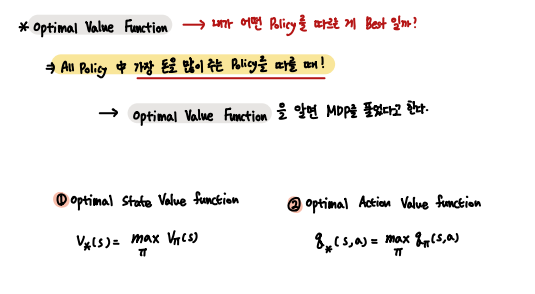 * Optimal Value Function → 내가 어떤 Policy를 따르는 게 Best 일까?
⇒ All Policy 中 가장 돈을 많이 주는 Policy를 따를 때!
→ Optimal Value Function 을 알면 MDP를 풀었다고 한다.
① Optimal State Value function
② Optimal Action Value function
V*(s) = max_π Vπ(s)
q*(s,a) = max_π qπ(s,a)